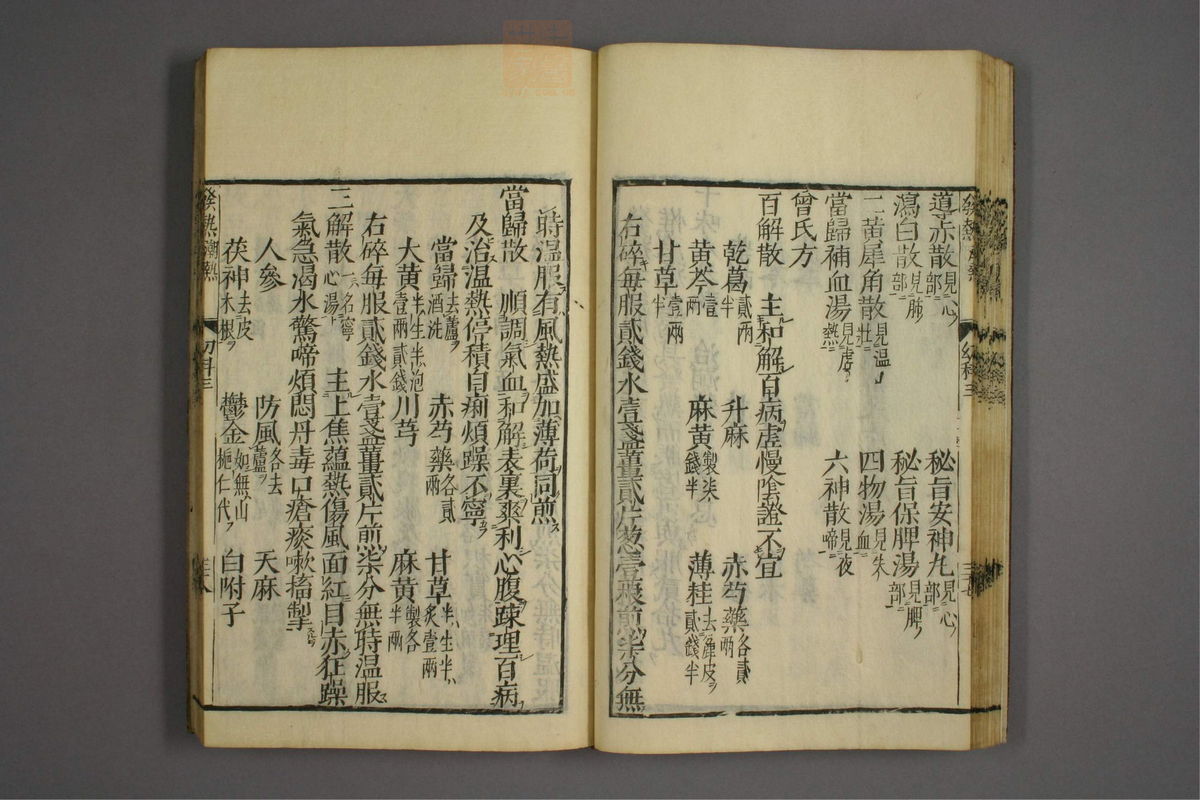 導赤散見心部 秘旨安神丸見心部
瀉白散見肺部 秘旨保脾湯見脾部
二黃犀角散見温壯 四物湯見失血
當歸補血湯見虛熱 六神散見夜啼
曾氏方
百解散 主和解百病虛慢陰證不宜
乾葛貳兩半 升麻 赤芍藥各貳兩
黃芩壹兩 麻黃製柒錢半 薄桂去麄皮貳錢半
甘草壹兩半
右碎每服貳錢水壹盞薑貳片葱壹根煎柒分無
時温服有風熱盛加薄荷同煎
當歸散 順調氣血和解表裏爽利心腹疎理百病
及治温熱停積自痢煩躁不寧
當歸去蘆酒洗 赤芍藥各貳兩 甘草半生半炙壹兩
大黃半生半泡壹兩貳錢 川芎 麻黃製各半兩
右碎每服貳錢水壹盞薑貳片煎柒分無時温服
三解散一名寧心湯 主上焦蘊熱傷風面紅目赤狂躁
氣急渴水驚啼煩悶丹毒口瘡痰嗽搐掣
人參 防風各去蘆 天麻
茯神去皮木根 鬱金如無山梔仁代 白附子
發熱潮熱 幼科三 三八